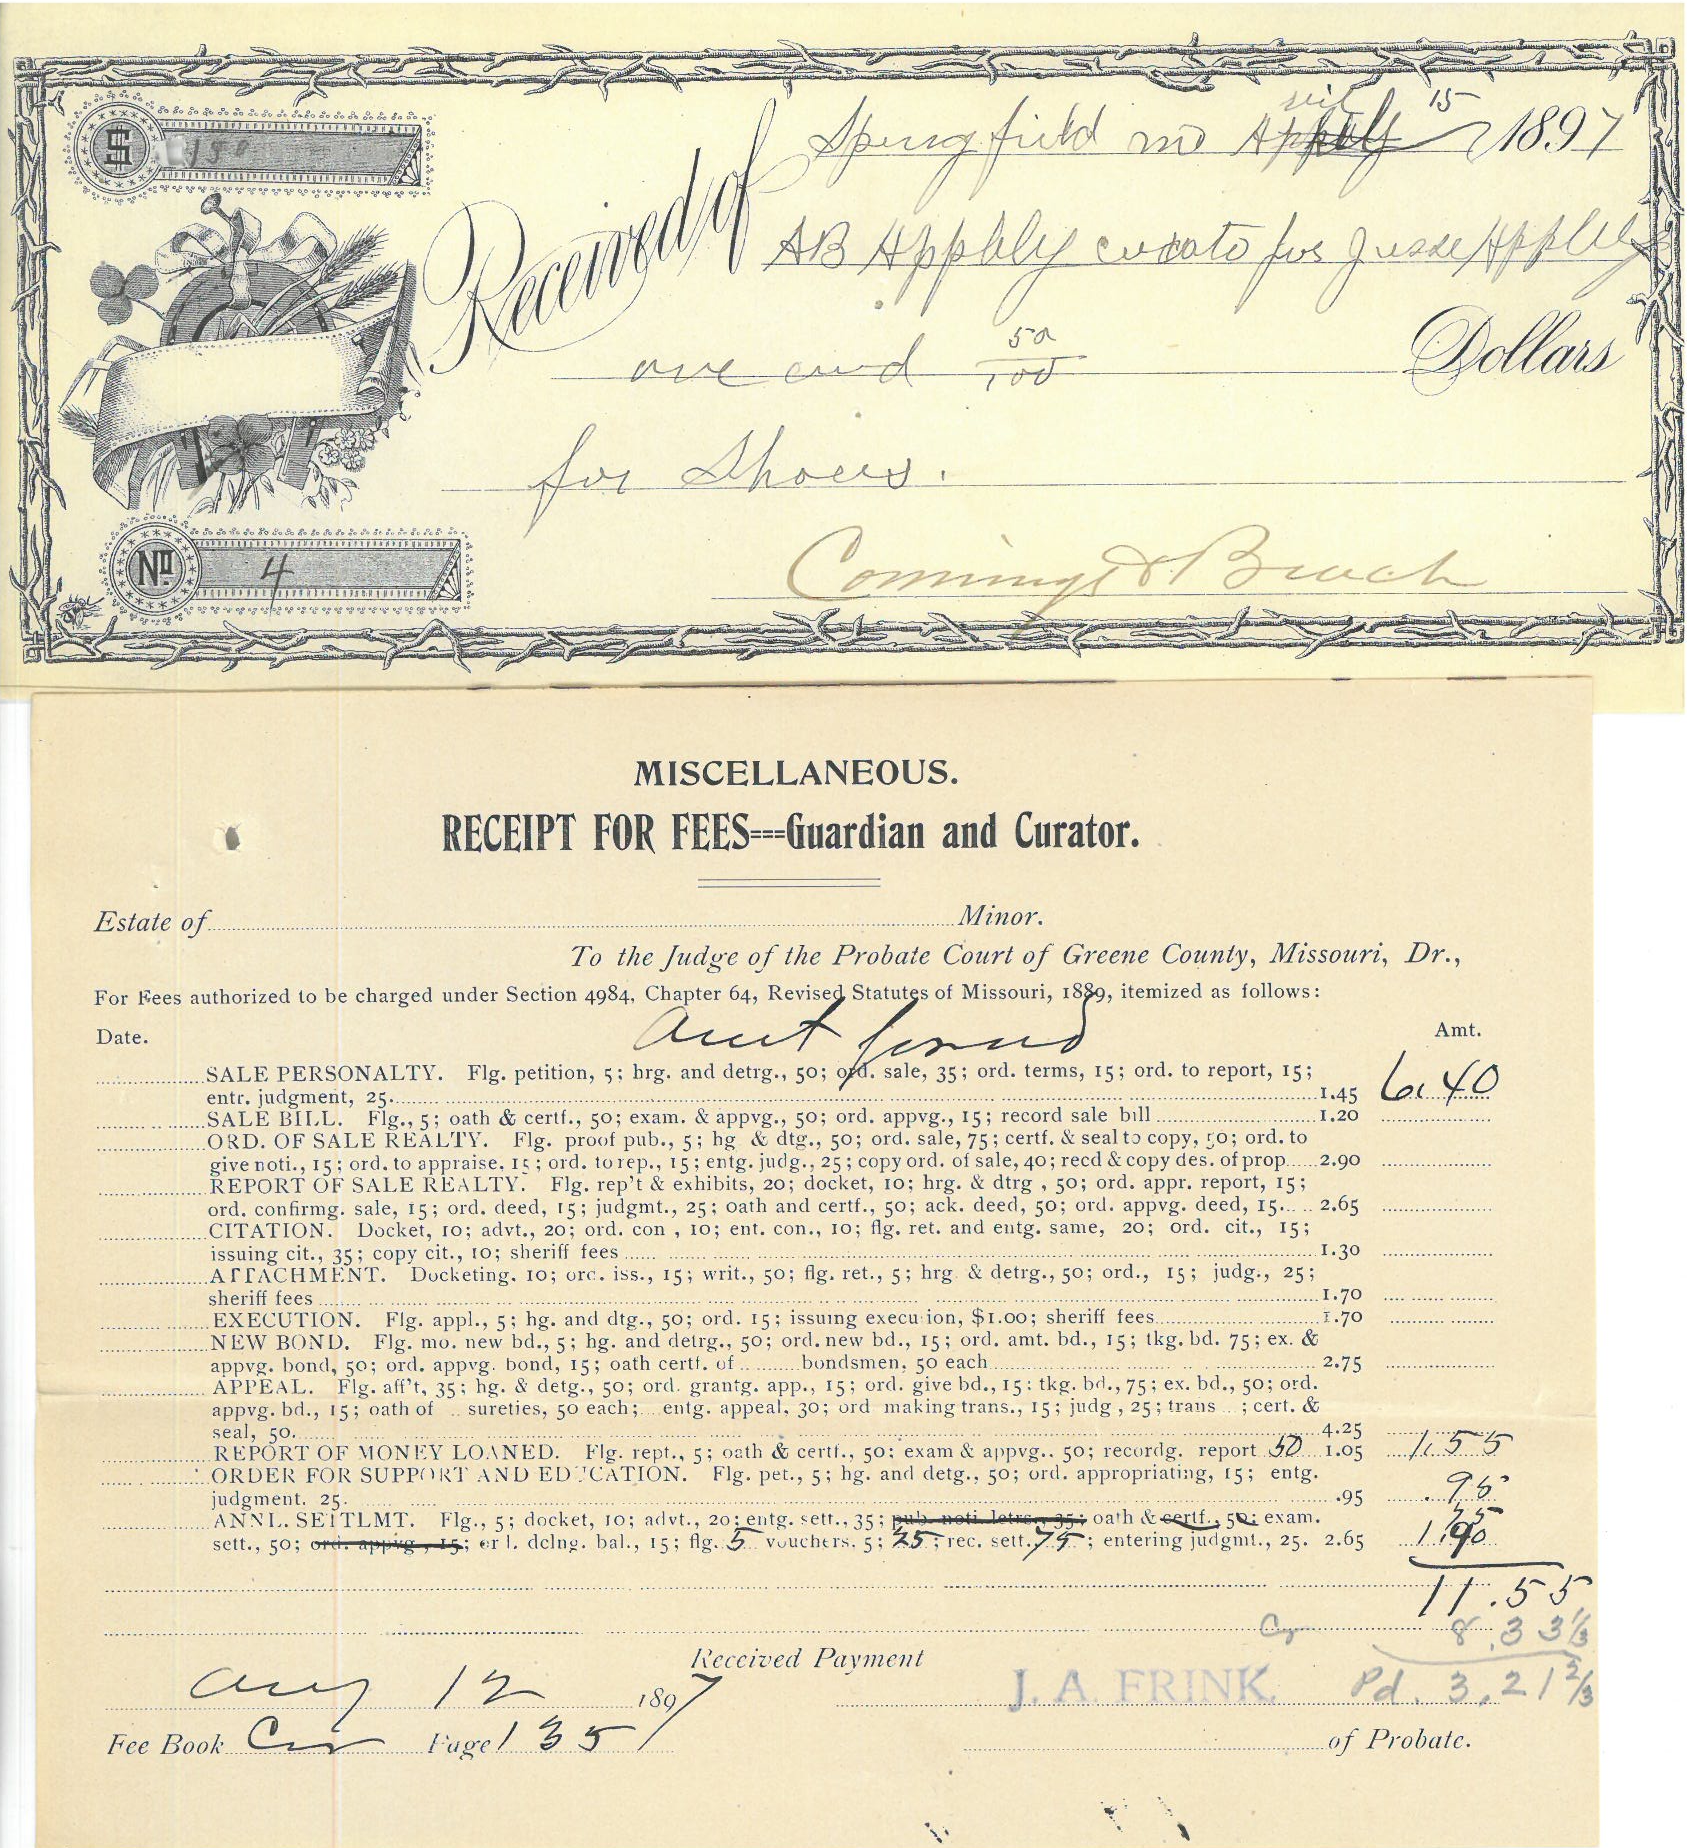 Springfield mo April 15 1897
$ 150
Received of AB Apphly curato for Jesse Apphly
one and 50/100 Dollars
for Shoes.
No. 4
MISCELLANEOUS.
RECEIPT FOR FEES===Guardian and Curator.
Estate of Minor.
To the Judge of the Probate Court of Greene County, Missouri, Dr.,
For Fees authorized to be charged under Section 4984, Chapter 64, Revised Statutes of Missouri, 1889, itemized as follows:
Date. Amt forwd Amt.
SALE PERSONALTY. Flg. petition, 5; hrg. and detrg., 50; ord. sale, 35; ord. terms, 15; ord. to report, 15;
entr. judgment, 25. 1.45 6.40
SALE BILL. Flg., 5; oath & certf., 50; exam. & appvg., 50; ord. appvg., 15; record sale bill 1.20
ORD. OF SALE REALTY. Flg. proof pub., 5; hg & dtg., 50; ord. sale, 75; certf. & seal to copy, 50; ord. to
give noti., 15; ord. to appraise, 15; ord. to rep., 15; entg. judg., 25; copy ord. of sale, 40; recd & copy des. of prop 2.90
REPORT OF SALE REALTY. Flg. rep't & exhibits, 20; docket, 10; hrg. & dtrg, 50; ord. appr. report, 15;
ord. confirmg. sale, 15; ord. deed, 15; judgmt., 25; oath and certf., 50; ack. deed, 50; ord. appvg. deed, 15. 2.65
CITATION. Docket, 10; advt., 20; ord. con, 10; ent. con., 10; flg. ret. and entg. same, 20; ord. cit., 15;
issuing cit., 35; copy cit., 10; sheriff fees 1.30
ATTACHMENT. Docketing, 10; orc. iss., 15; writ., 50; flg. ret., 5; hrg & detrg., 50; ord., 15; judg., 25;
sheriff fees 1.70
EXECUTION. Flg. appl., 5; hg. and dtg., 50; ord. 15; issuing execution, $1.00; sheriff fees 1.70
NEW BOND. Flg. mo. new bd., 5; hg. and detrg., 50; ord. new bd., 15; ord. amt. bd., 15; tkg. bd. 75; ex. &
appvg. bond, 50; ord. appvg. bond, 15; oath certf. of bondsmen, 50 each 2.75
APPEAL. Flg. aff't, 35; hg. & detg., 50; ord. grantg. app., 15; ord. give bd., 15; tkg. bd., 75; ex. bd., 50; ord.
appvg. bd., 15; oath of sureties, 50 each; entg. appeal, 30; ord making trans., 15; judg, 25; trans ; cert. &
seal, 50. 4.25
REPORT OF MONEY LOANED. Flg. rept., 5; oath & certf., 50; exam & appvg., 50; recordg. report 50 1.05 1.55
ORDER FOR SUPPORT AND EDUCATION. Flg. pet., 5; hg. and detg., 50; ord. appropriating, 15; entg.
judgment, 25. .95 .95
ANNL. SETTLMT. Flg., 5; docket, 10; advt., 20; entg. sett., 35; pub. noti. letrs., 35; oath & certf., 50; exam.
sett., 50; ord. appvg., 15; erl. dclng. bal., 15; flg. 5 vouchers, 5; 25; rec. sett. 75; entering judgmt., 25. 2.65 1.90 75
11.55
Cr 8.33 1/3
Received Payment
Aug 12 1897 J. A. FRINK. Pd. 3.21 2/3
Fee Book Cur Page 135
of Probate.